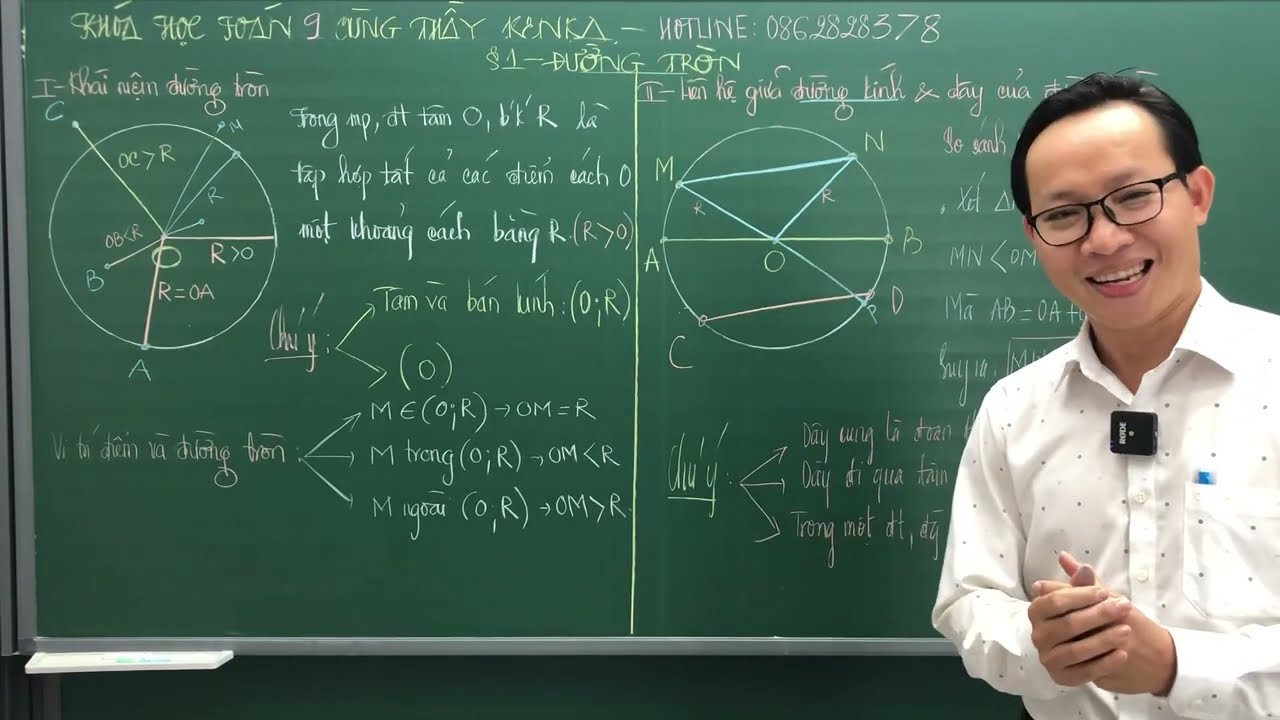 KHÓA HỌC TOÁN 9 CÙNG THẦY KENKA - HOTLINE: 0862828378
§1 - ĐƯỜNG TRÒN
I - Khái niệm đường tròn
C
M
OC > R
R
OB < R
O
R > 0
B
R = OA
A
Trong mp, đt tâm O, b'k' R là
tập hợp tất cả các điểm cách O
một khoảng cách bằng R. (R > 0)
Chú ý:
Tâm và bán kính: (O; R)
(O)
Vị trí điểm và đường tròn:
M ∈ (O; R) → OM = R
M trong (O; R) → OM < R
M ngoài (O; R) → OM > R
II - Liên hệ giữa đường kính & dây của
M
N
R
R
A
O
B
D
P
C
So sánh
Xét Δ
MN < OM
Mà AB = OA +
Suy ra:
Chú ý:
Dây cung là đoạn
Dây đi qua tâm
Trong một đt,
RODE